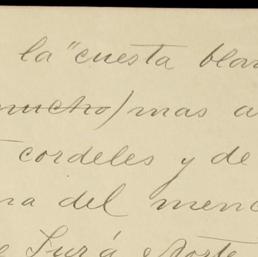 la "cuesta blan
mucho) mas a
cordeles y de
na del menc
e Jurá Norte